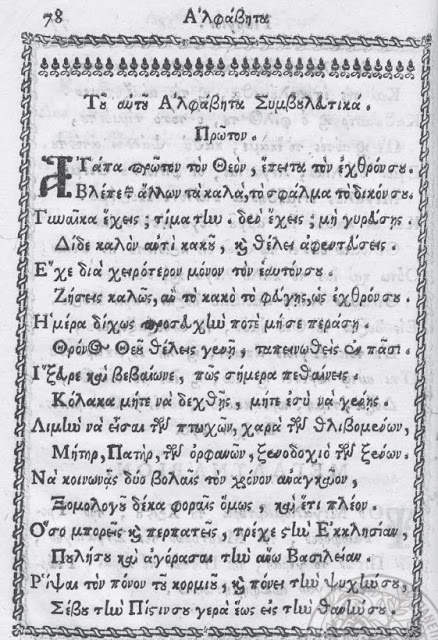 78 Ἀλφάβητα
Τοῦ αὐτοῦ Ἀλφάβητα Συμβουλευτικά.
Πρῶτον.
ἈΓάπα πρῶτον τὸν Θεὸν, ἔπειτα τὸν ἐχθρόνσου.
Βλέπε τῶν ἄλλων τὰ καλὰ, τὸ σφάλμα τὸ δικόνσου.
Γυναῖκα ἔχεις; τίμα τὴν. δὲν ἔχεις; μὴ γυράσῃς.
Δίδε καλὸν ἀντὶ κακοῦ, καὶ θέλει ἀφεντάσεις.
Ἔχε διὰ χειρότερον μόνον τὸν ἑαυτόνσου.
Ζήσεις καλῶς, ἂν τὸ κακὸ τὸ φύγῃς, ὡς ἐχθρόνσου.
Ἡμέρα δίχως προσευχὴν ποτὲ μή σε περάσῃ.
Θρόνος Θεοῦ θέλεις γενῇ, ταπεινωθεὶς ἐν πᾶσι.
Ἴξευρε καὶ βεβαίωνε, πῶς σήμερα πεθαίνεις.
Κόλακα μήτε νὰ δεχθῇς, μήτε ἐσὺ νὰ γένῃς.
Λιμὴν νὰ εἶσαι τῶν πτωχῶν, χαρὰ τῶν θλιβομένων,
Μήτηρ, Πατὴρ, τῶν ὀρφανῶν, ξενοδοχιὸ τῶν ξένων.
Νὰ κοινωνᾷς δύο βολαῖς τὸν χρόνον ἀναγκαῖον,
Ξομολογοῦ δέκα φοραῖς ὅμως, καὶ ἔτι πλέον.
Ὅσο μπορεῖς καὶ περπατεῖς, τρέχε στὴν Ἐκκλησίαν,
Πουλήσου καὶ ἀγόρασαι τὴν ἄνω Βασιλείαν.
Ῥίψαι τὸν πόνον τοῦ κορμιοῦ, καὶ πόνει τὴν ψυχήνσου,
Σέβου τὴν Πίστινσου γερὰ ἕως εἰς τὴν θανήνσου.